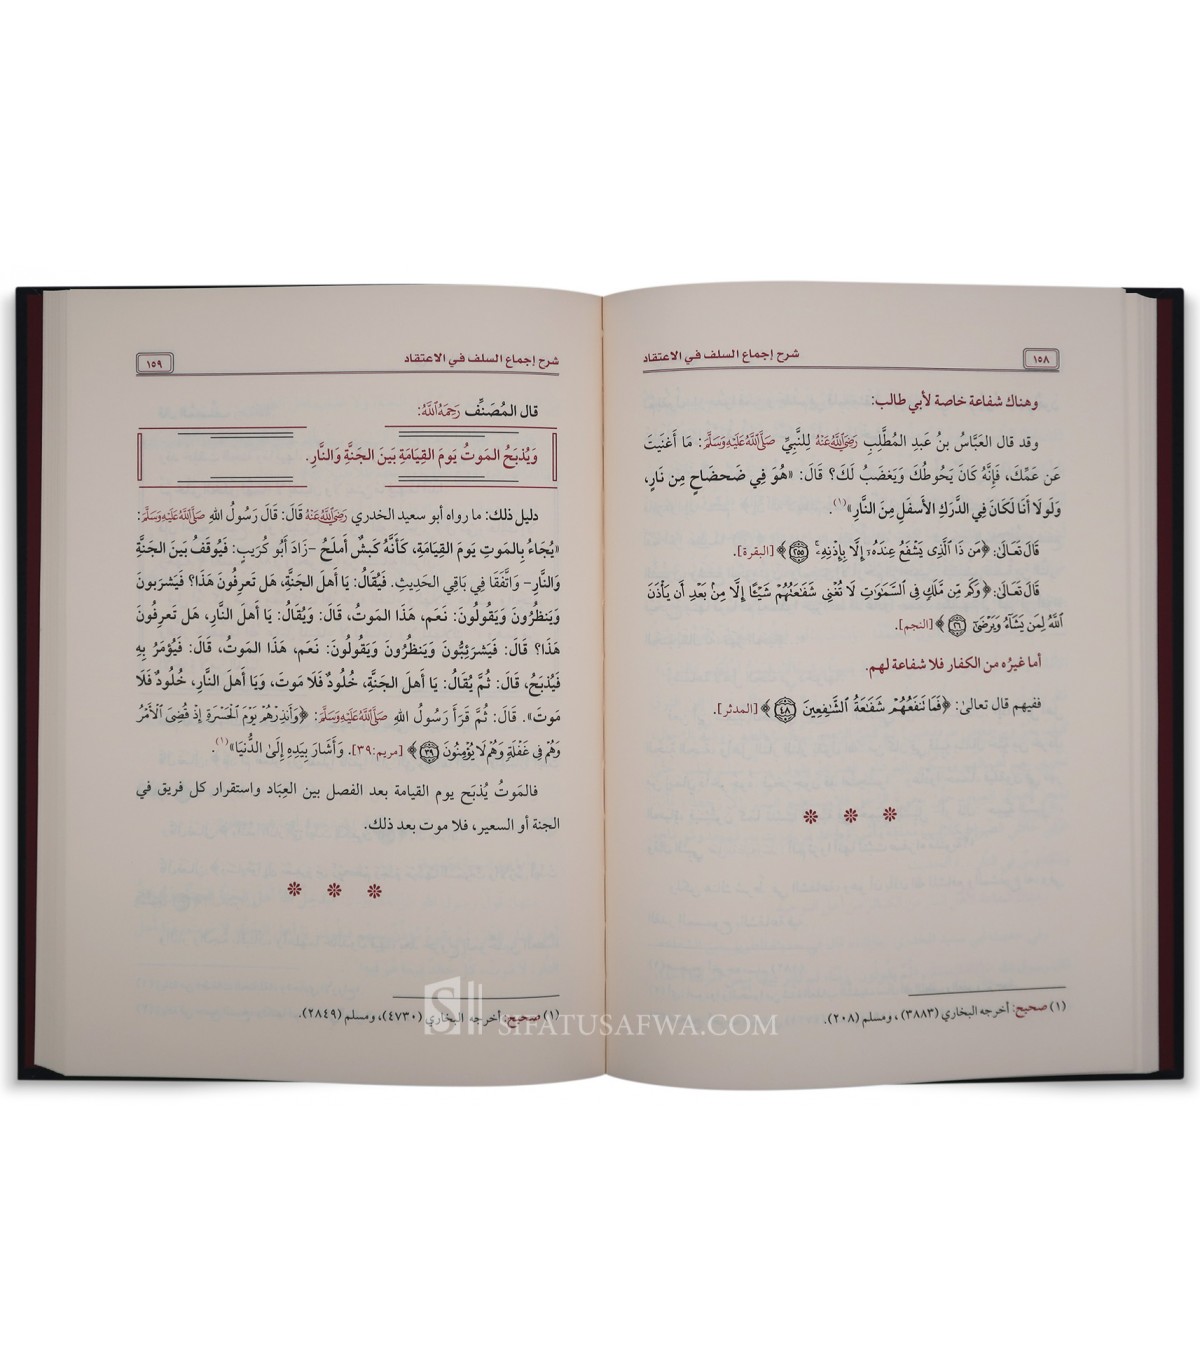 شرح إجماع السلف في الاعتقاد
١٥٨
وهناك شفاعة خاصة لأبي طالب:
وقد قال العَبَّاسُ بنُ عَبدِ المُطَّلِبِ رَضِيَ اللَّهُ عَنْهُ لِلنَّبِيِّ صَلَّى اللَّهُ عَلَيْهِ وَسَلَّمَ: مَا أَغنَيتَ
عَن عَمِّكَ، فَإِنَّهُ كَانَ يَحُوطُكَ وَيَغضَبُ لَكَ؟ قَالَ: «هُوَ فِي ضَحضَاحٍ مِن نَارٍ،
وَلَولَا أَنَا لَكَانَ فِي الدَّرَكِ الأَسفَلِ مِنَ النَّارِ»(١).
قَالَ تَعَالَى: ﴿مَن ذَا ٱلَّذِى يَشۡفَعُ عِندَهُۥٓ إِلَّا بِإِذۡنِهِۦۚ ٢٥٥﴾ [البقرة].
قَالَ تَعَالَى: ﴿وَكَم مِّن مَّلَكٖ فِى ٱلسَّمَٰوَٰتِ لَا تُغۡنِى شَفَٰعَتُهُمۡ شَيۡـًٔا إِلَّا مِنۢ بَعۡدِ أَن يَأۡذَنَ
ٱللَّهُ لِمَن يَشَآءُ وَيَرۡضَىٰٓ ٢٦﴾ [النجم].
أما غيرُه من الكفار فلا شفاعة لهم.
ففيهم قال تعالى: ﴿فَمَا تَنفَعُهُمۡ شَفَٰعَةُ ٱلشَّٰفِعِينَ ٤٨﴾ [المدثر].
(١) صحيح: أخرجه البخاري (٣٨٨٣)، ومسلم (٢٠٨).
شرح إجماع السلف في الاعتقاد
١٥٩
قال المُصَنِّف رَحِمَهُ اللَّهُ:
وَيُذبَحُ المَوتُ يَومَ القِيَامَةِ بَينَ الجَنَّةِ وَالنَّارِ.
دليل ذلك: ما رواه أبو سعيد الخدري رَضِيَ اللَّهُ عَنْهُ قَالَ: قَالَ رَسُولُ اللهِ صَلَّى اللَّهُ عَلَيْهِ وَسَلَّمَ:
«يُجَاءُ بِالمَوتِ يَومَ القِيَامَةِ، كَأَنَّهُ كَبشٌ أَملَحُ -زَادَ أَبُو كُرَيبٍ: فَيُوقَفُ بَينَ الجَنَّةِ
وَالنَّارِ- وَاتَّفَقَا فِي بَاقِي الحَدِيثِ. فَيُقَالُ: يَا أَهلَ الجَنَّةِ، هَل تَعرِفُونَ هَذَا؟ فَيَشرَبونَ
وَيَنظُرُونَ وَيَقُولُونَ: نَعَم، هَذَا المَوتُ، قَالَ: وَيُقَالُ: يَا أَهلَ النَّارِ، هَل تَعرِفُونَ
هَذَا؟ قَالَ: فَيَشرَئِبُّونَ وَيَنظُرُونَ وَيَقُولُونَ: نَعَم، هَذَا المَوتُ، قَالَ: فَيُؤمَرُ بِهِ
فَيُذبَحُ، قَالَ: ثُمَّ يُقَالُ: يَا أَهلَ الجَنَّةِ، خُلُودٌ فَلَا مَوتَ، وَيَا أَهلَ النَّارِ، خُلُودٌ فَلَا
مَوتَ». قَالَ: ثُمَّ قَرَأَ رَسُولُ اللهِ صَلَّى اللَّهُ عَلَيْهِ وَسَلَّمَ: ﴿وَأَنذِرۡهُمۡ يَوۡمَ ٱلۡحَسۡرَةِ إِذۡ قُضِىَ ٱلۡأَمۡرُ
وَهُمۡ فِى غَفۡلَةٖ وَهُمۡ لَا يُؤۡمِنُونَ ٣٩﴾ [مريم:٣٩]. وَأَشَارَ بِيَدِهِ إِلَى الدُّنيَا»(١).
فالمَوتُ يُذبَح يوم القيامة بعد الفصل بين العِبَاد واستقرار كل فريق في
الجنة أو السعير، فلا موت بعد ذلك.
(١) صحيح: أخرجه البخاري (٤٧٣٠)، ومسلم (٢٨٤٩).
S SIFATUSAFWA.COM